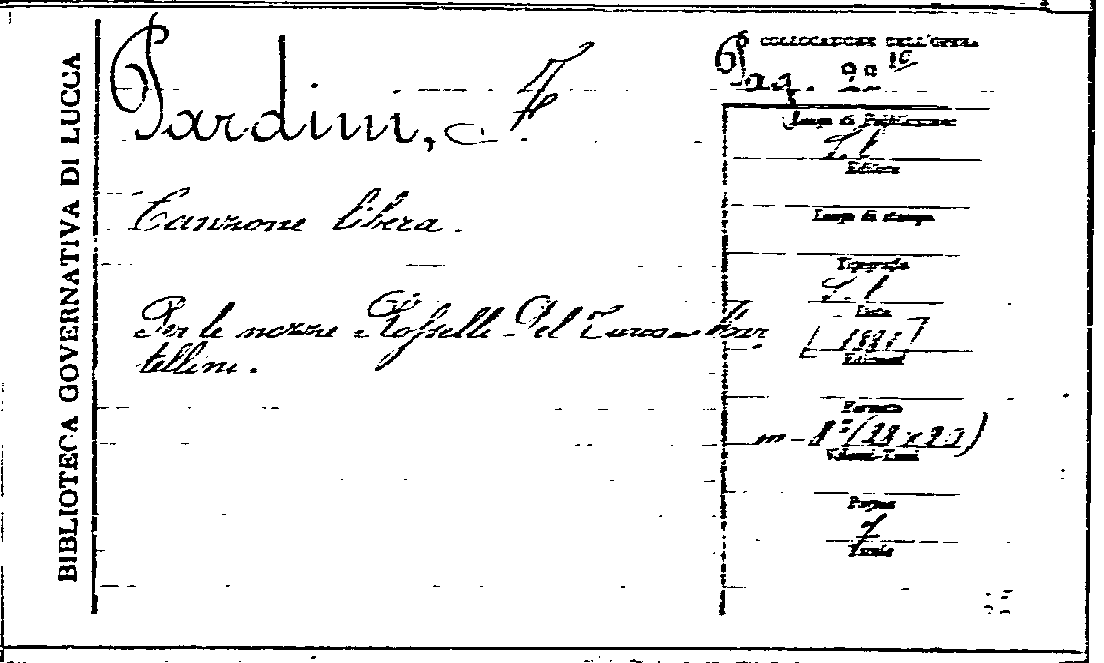 BIBLIOTECA GOVERNATIVA DI LUCCA
Pardini, F.
Canzone libera.
Per le nozze Rosselli Del Turco - Bar
tellini.
COLLOCAZIONE DELL'OPERA
Luogo di Pubblicazione
S. l.
Editore
Luogo di stampa
Tipografia
S. l.
Data
Edizione
Formato
in - 8°
Volumi-Tomi
Pagine
7
Tavole